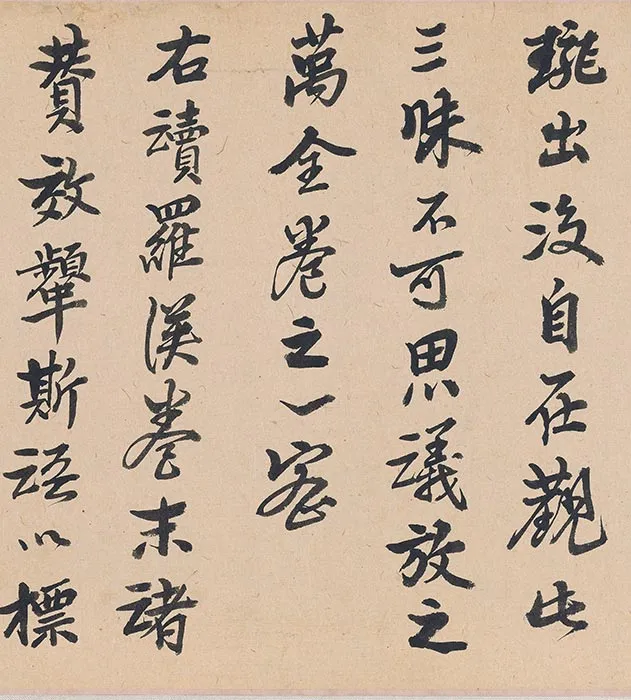 出沒自在觀此
三昧不可思議放之
萬全卷之一密
右讀羅漢卷末諸
賛效顰斯語以標